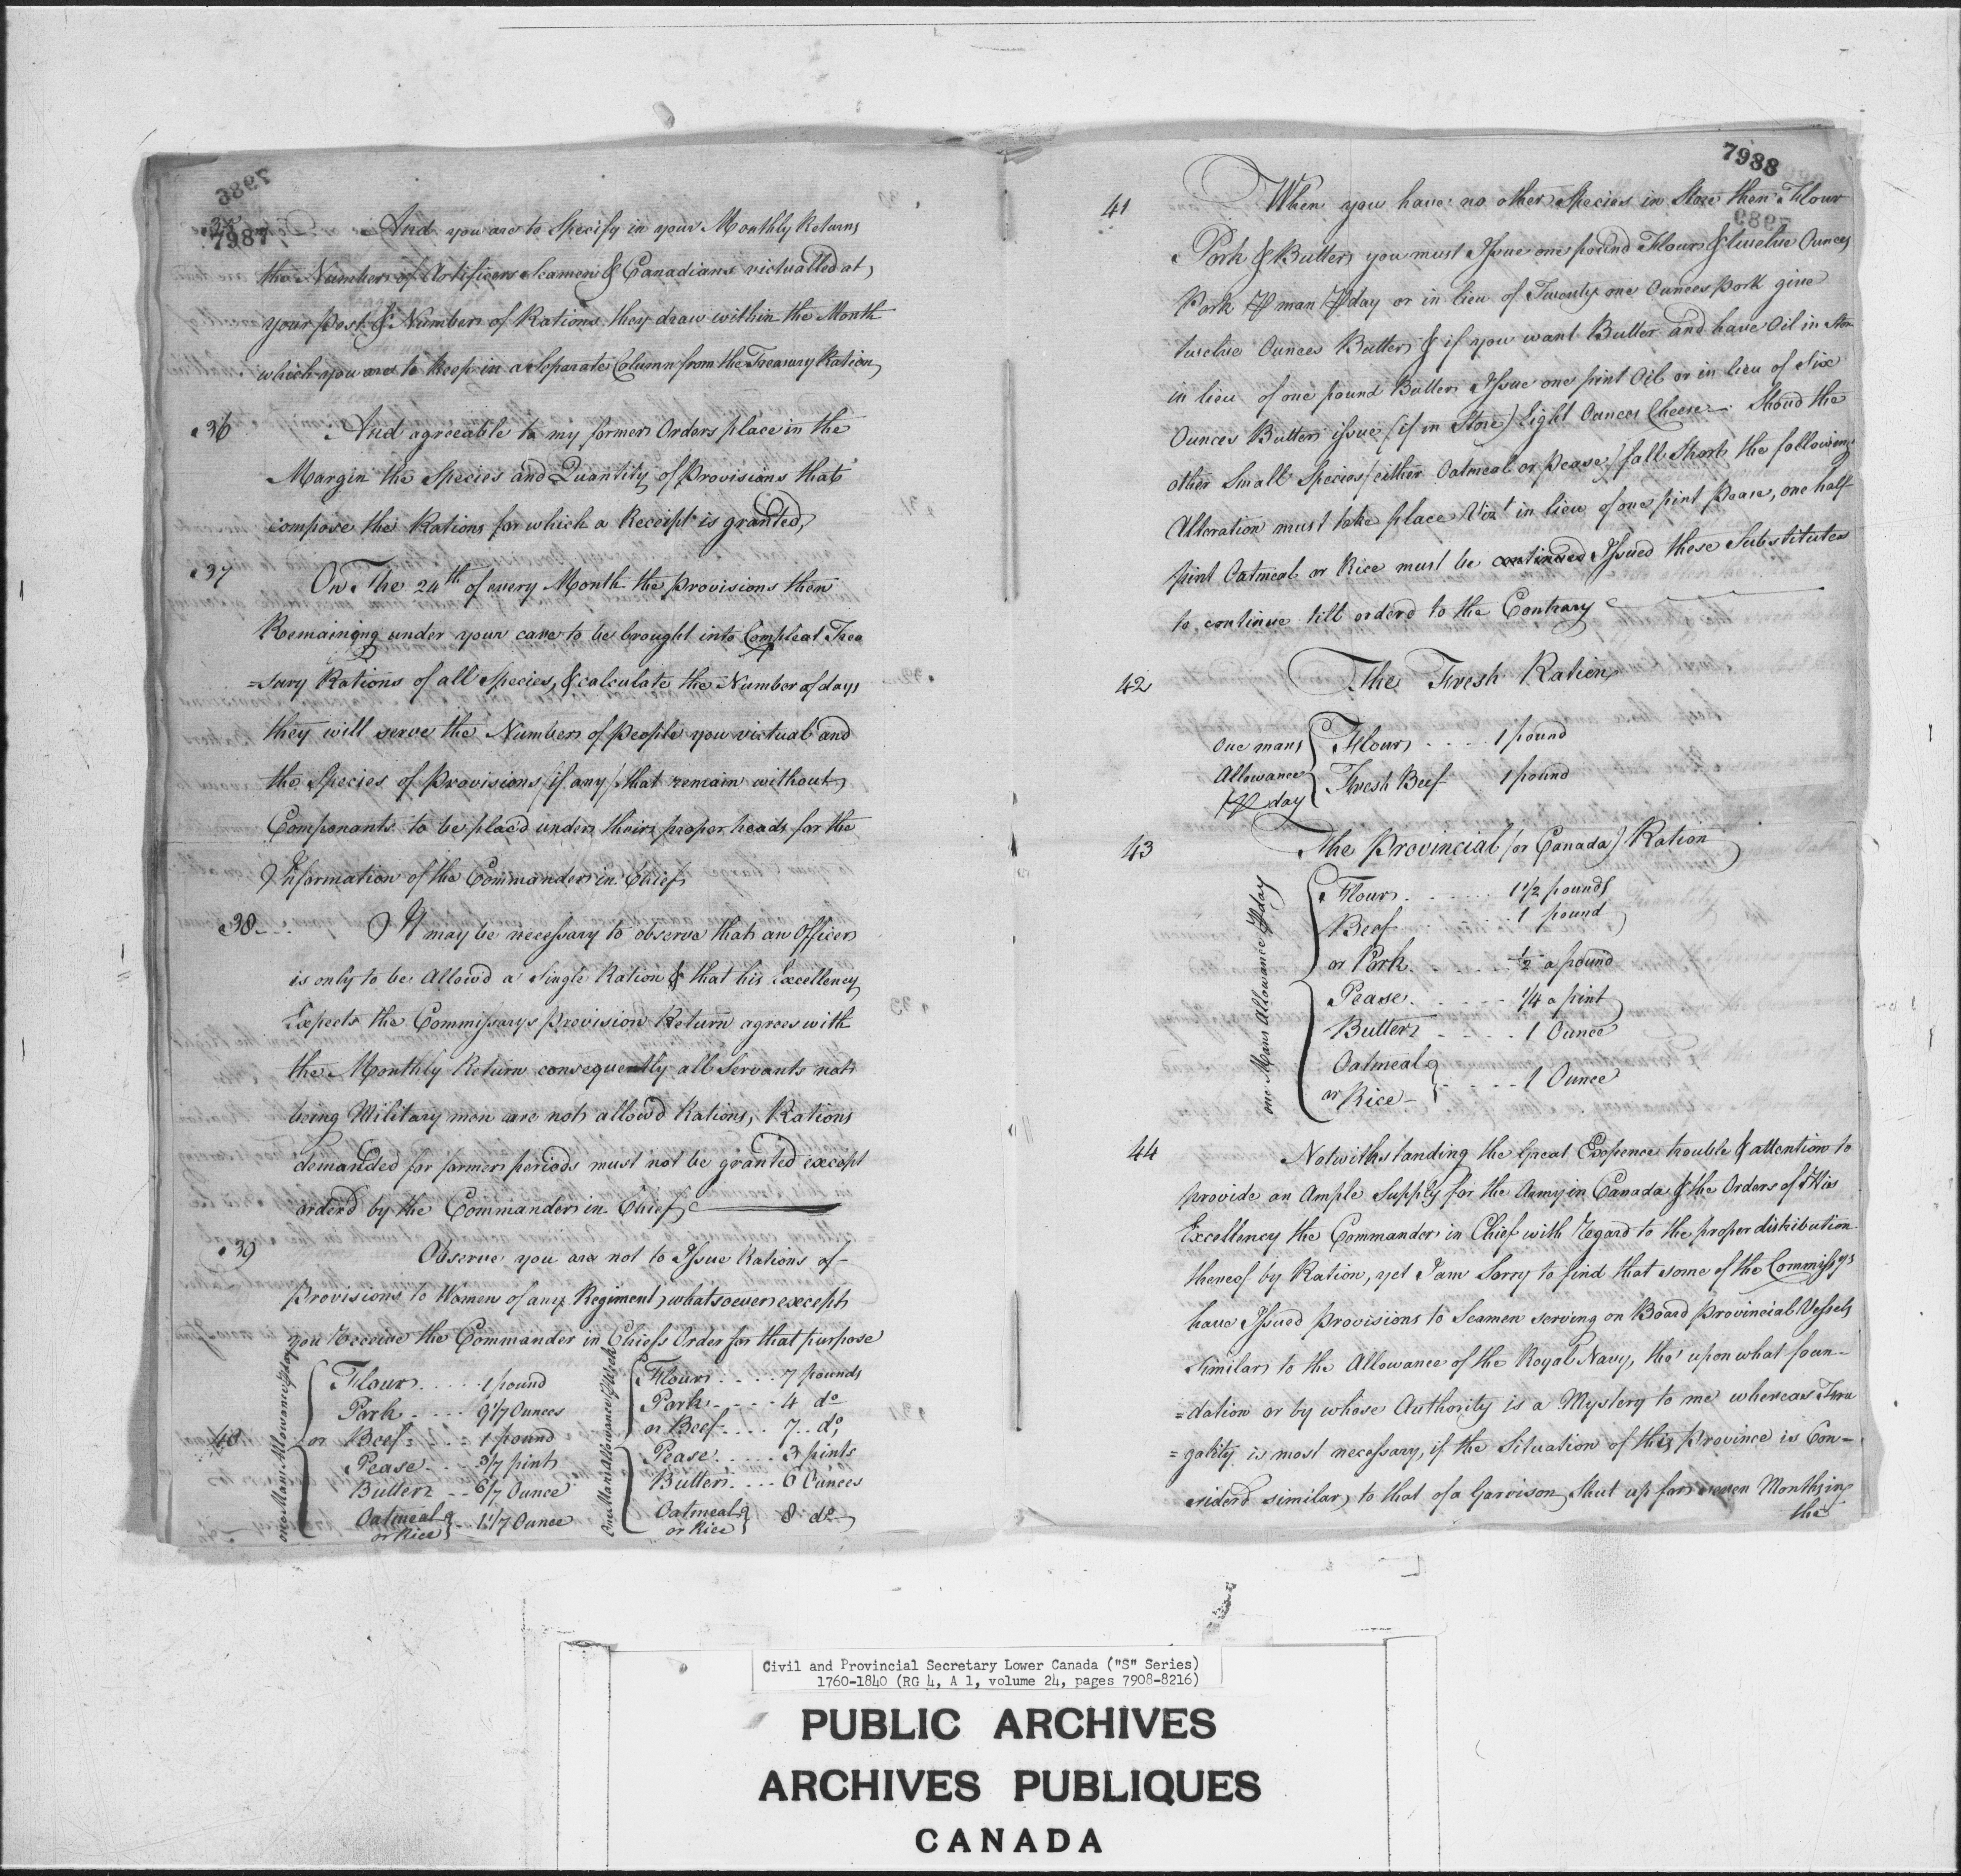 7987
35
And you are to Specify in your Monthly Returns
the Number of Artificers Seamen & Canadians victualled at
your post & Number of Rations they draw within the Month
which you are to keep in a Separate Column from the Treasury Ration
36 And agreeable to my former Orders place in the
Margin the Species and Quantity of Provisions that
compose the Rations for which a Receipt is granted,
37 On The 24th of every Month the provisions then
Remaining under your care to be brought into Compleat Trea
=sury Rations of all Species, & calculate the Number of days
they will serve the Number of people you victual and
the Species of provisions (if any) that remain without
Componants to be placd under their proper heads for the
Information of the Commander in Chief
38 It may be necessary to observe that an Officer
is only to be Allow'd a Single Ration & that his Excellency
Expects the Commissarys provision Return agrees with
the Monthly Return consequently all Servants not
being Military men are not allow'd Rations, Rations
demanded for former periods must not be granted except
orderd by the Commander in Chief
39 Observe you are not to Issue Rations of
Provisions to Women of any Regiment whatsoever except
you Receive the Commander in Chiefs Order for that purpose
40
one Mans Allowance ⅌ day
Flour 1 pound
Pork 9 1/7 Ounces
or Beef 1 pound
Pease 3/7 pint
Butter 6/7 Ounce
Oatmeal
or Rice 1 1/7 Ounce
One Mans Allowance ⅌ Week
Flour 7 pounds
Pork 4 do
or Beef 7 do
Pease 3 pints
Butter 6 Ounces
Oatmeal
or Rice 8 do
7988
41 When you have no other Species in Store then Flour
Pork & Butter you must Issue one pound Flour & twelve Ounces
Pork ⅌ man ⅌ day or in lieu of Twenty one Ounces Pork give
twelve Ounces Butter & if you want Butter and have Oil in Store
in lieu of one pound Butter Issue one pint Oil or in lieu of Six
Ounces Butter issue (if in Store) Eight Ounces Cheese — Shoud the
other Small Species (either Oatmeal or Pease) fall Short the following
Alteration must take place Vizt in lieu of one pint Pease, one half
pint Oatmeal or Rice must be continued Issued these Substitutes
to continue till orderd to the Contrary
42 The Fresh Ration
One mans
Allowance
⅌ day
Flour 1 pound
Fresh Beef 1 pound
43 The Provincial (or Canada) Ration
one Mans Allowance ⅌ day
Flour 1 1/2 pounds
Beef 1 pound
or Pork 1/2 a pound
Pease 1/4 a pint
Butter 1 Ounce
Oatmeal
or Rice 1 Ounce
44 Notwithstanding the Great Expence trouble & attention to
provide an Ample Supply for the Army in Canada & the Orders of His
Excellency the Commander in Chief with Regard to the proper distribution
thereof by Ration, yet I am Sorry to find that some of the Commissys
have Issued Provisions to Seamen serving on Board Provincial Vessels
Similar to the Allowance of the Royal Navy, tho' upon what foun-
=dation or by whose Authority is a Mystery to me whereas Fru
=gality is most necessary, if the Situation of this Province is Con=
siderd similar to that of a Garrison Shut up for seven Months in
the
Civil and Provincial Secretary Lower Canada ("S" Series)
1760-1840 (RG 4, A 1, volume 24, pages 7908-8216)
PUBLIC ARCHIVES
ARCHIVES PUBLIQUES
CANADA